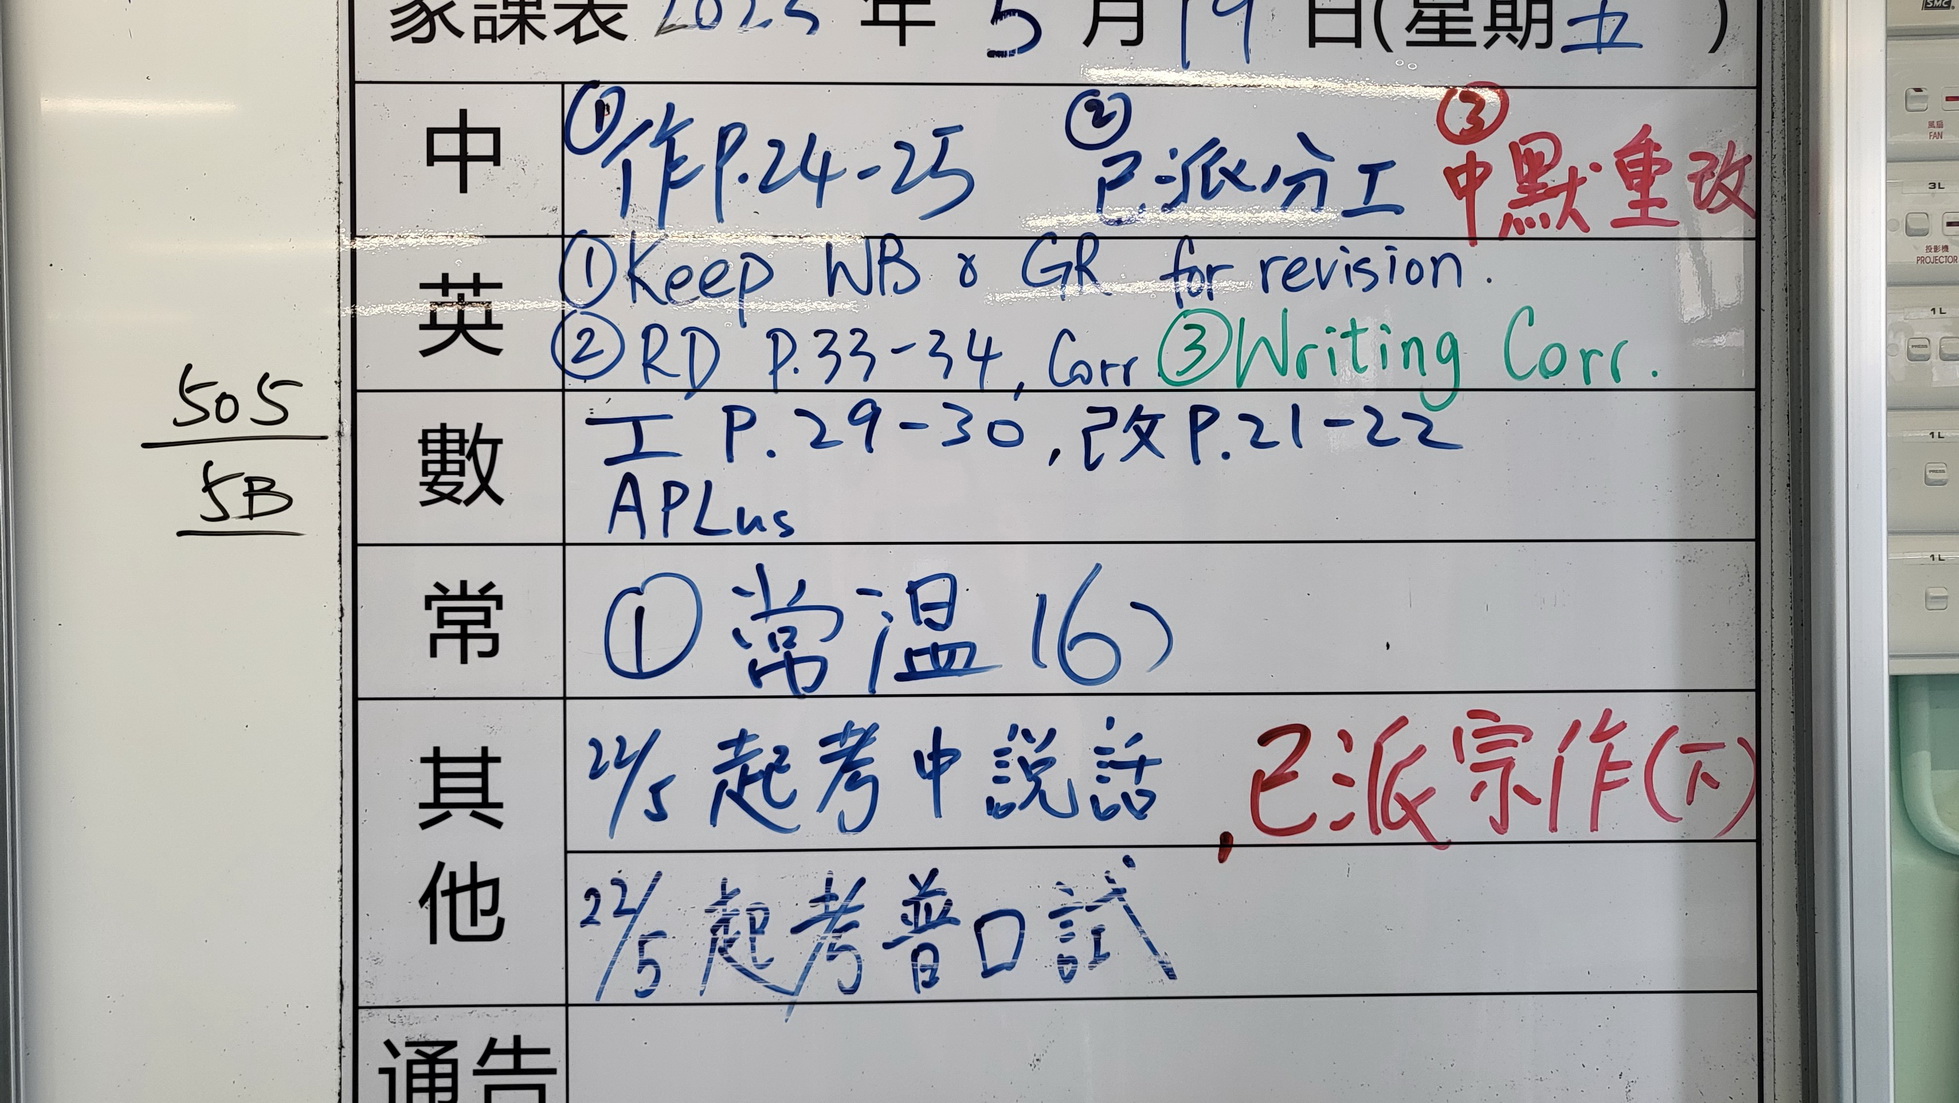 家課表 2023 年 5 月 19 日(星期五)
中 ①作P.24-25 ②已派分工 ③中默重改
英 ①Keep WB & GR for revision.
②RD P.33-34, Corr ③Writing Corr.
數 工 P.29-30, 改P.21-22
APLus
常 ①常溫(6)
其他 22/5 起考中説話, 已派宗作(下)
22/5 起考普口試
通告
505
5B
SMC
風扇
FAN
3L
投影機
PROJECTOR
1L
PRESS
1L
PRESS
1L